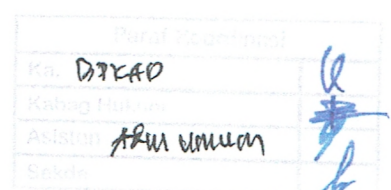 Paraf Koordinasi
Ka. BPKAD
Kabag Hukum
Asisten ADM UMUM
Sekda